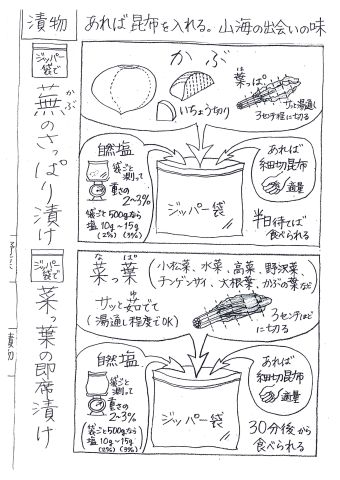 漬物
あれば昆布を入れる。山海の出会いの味
ジッパー
袋で
蕪のさっぱり漬け
かぶ
かぶ
いちょう切り
葉っぱ
は
サッと湯通し
3センチ程に切る
自然塩
袋ごと
測って
重さの
2~3%
袋ごと500gなら
塩10g~15g
(2%) (3%)
ジッパー袋
あれば
細切昆布
適量
半日待てば
食べられる
ジッパー
袋で
菜っ葉の即席漬け
な ぱ
菜っ葉
サッと茹でて
ゆ
(湯通し程度でOK)
(小松菜、水菜、高菜、野沢菜、
チンゲンサイ、大根葉、かぶの葉など)
3センチほど
に切る
自然塩
袋ごと
測って
重さの
2~3%
(袋ごと500gなら
塩10g~15g
(2%) (3%)
ジッパー袋
あれば
細切昆布
適量
30分後から
食べられる
漬物